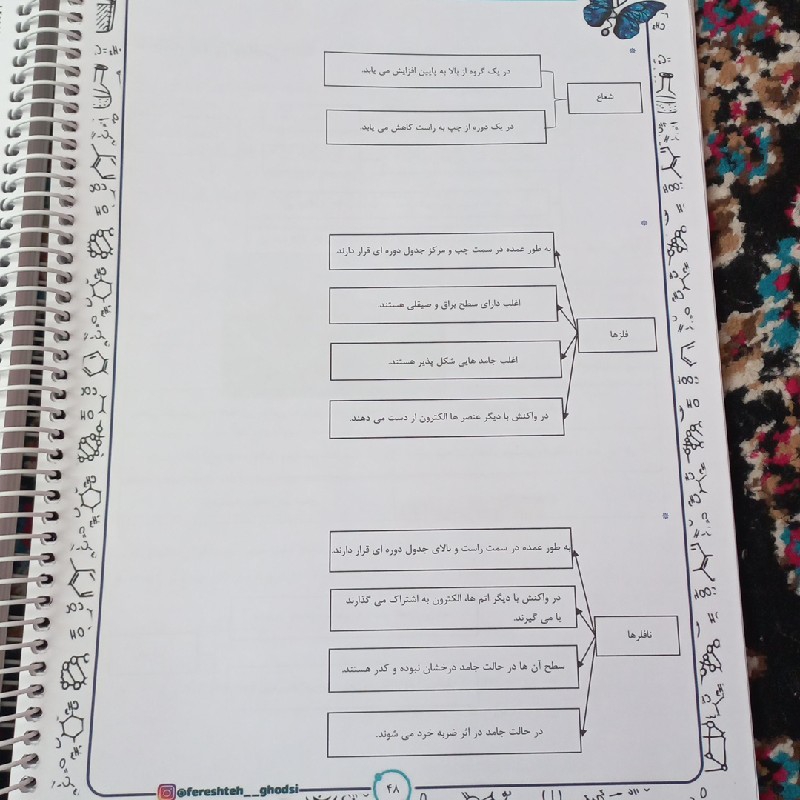 در یک گروه از بالا به پایین افزایش می یابد.
شعاع
در یک دوره از چپ به راست کاهش می یابد.
به طور عمده در سمت چپ و مرکز جدول دوره ای قرار دارند.
اغلب دارای سطح براق و صیقلی هستند.
فلزها
اغلب جامد هایی شکل پذیر هستند.
در واکنش با دیگر عنصر ها الکترون از دست می دهند.
به طور عمده در سمت راست و بالای جدول دوره ای قرار دارند.
در واکنش با دیگر اتم ها، الکترون به اشتراک می گذارند
یا می گیرند.
نافلزها
سطح آن ها در حالت جامد درخشان نبوده و کدر هستند.
در حالت جامد در اثر ضربه خرد می شوند.
@fereshteh__ghodsi
۴۸